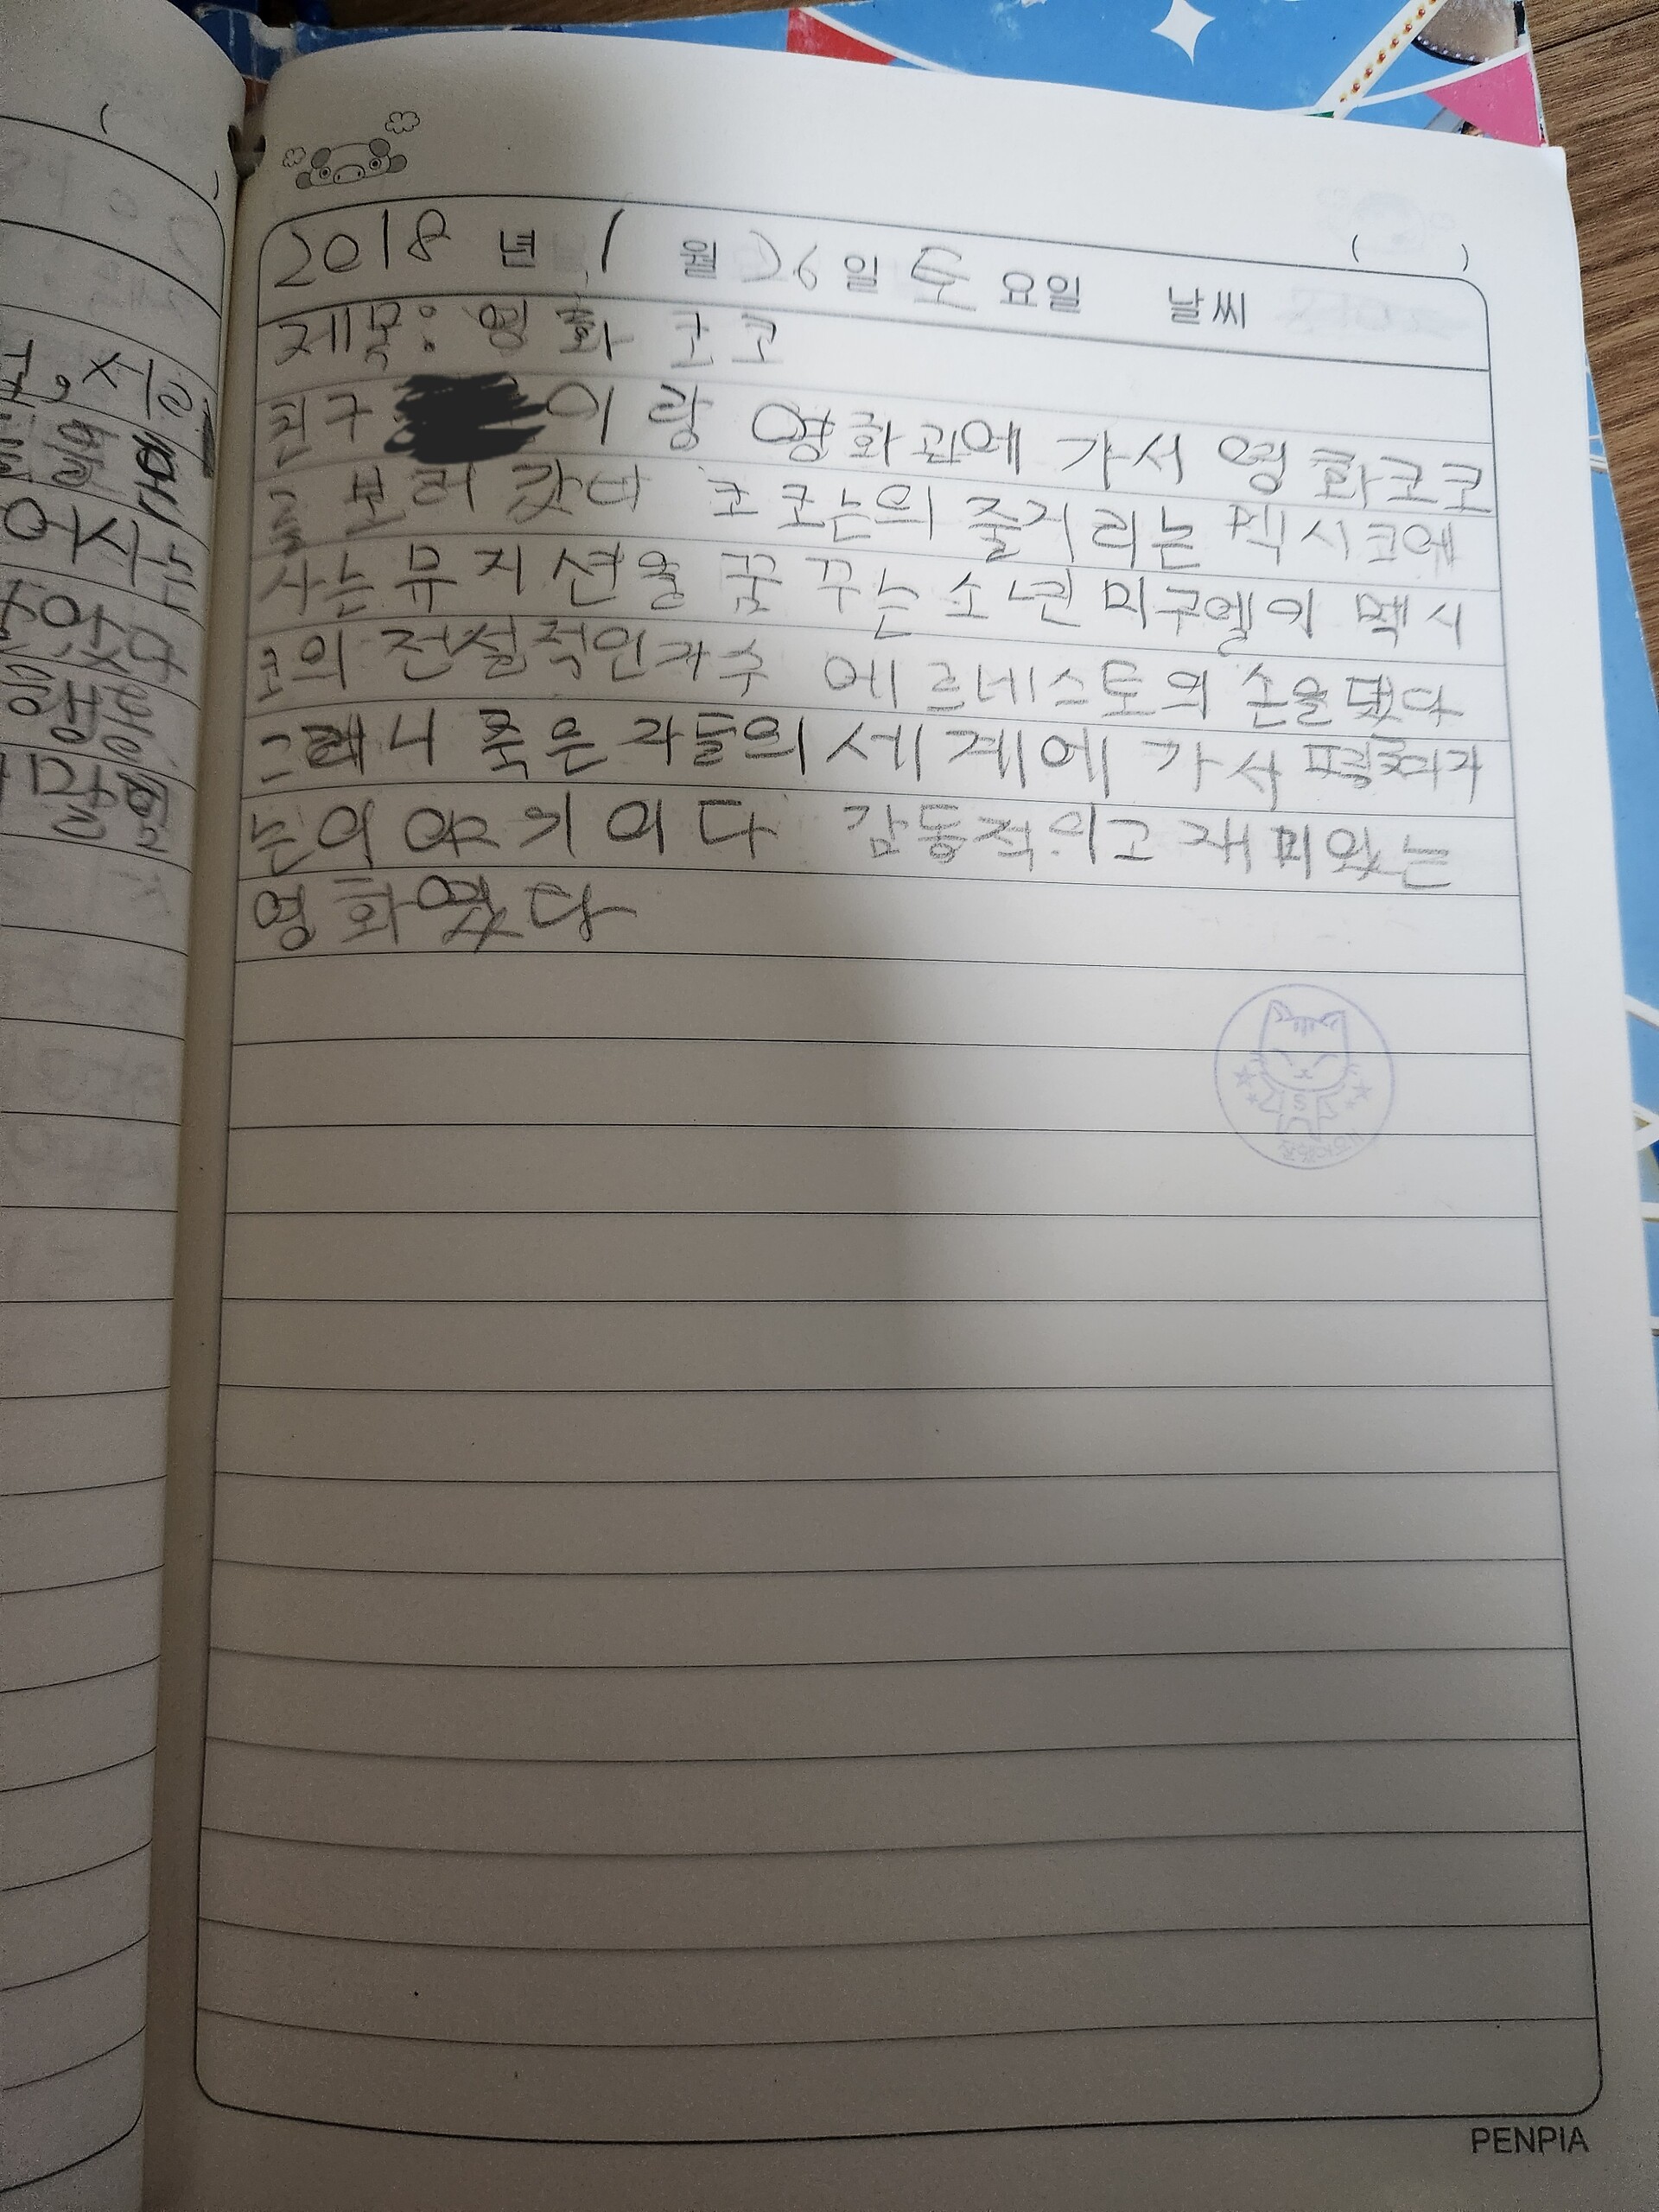 2018 년 1 월 26 일 토 요일 날씨 ( )
제목: 영화 코코
친구 이랑 영화관에 가서 영화코코
를 보러 갔다 코코는의 줄거리는 멕시코에
사는 뮤지션을 꿈꾸는 소년 미구엘이 멕시
코의 전설적인가수 에르네스토의 손을댔다
그래니 죽은자들의세계에 가서
는이야기이다 감동적이고 재미있는
영화였다
PENPIA